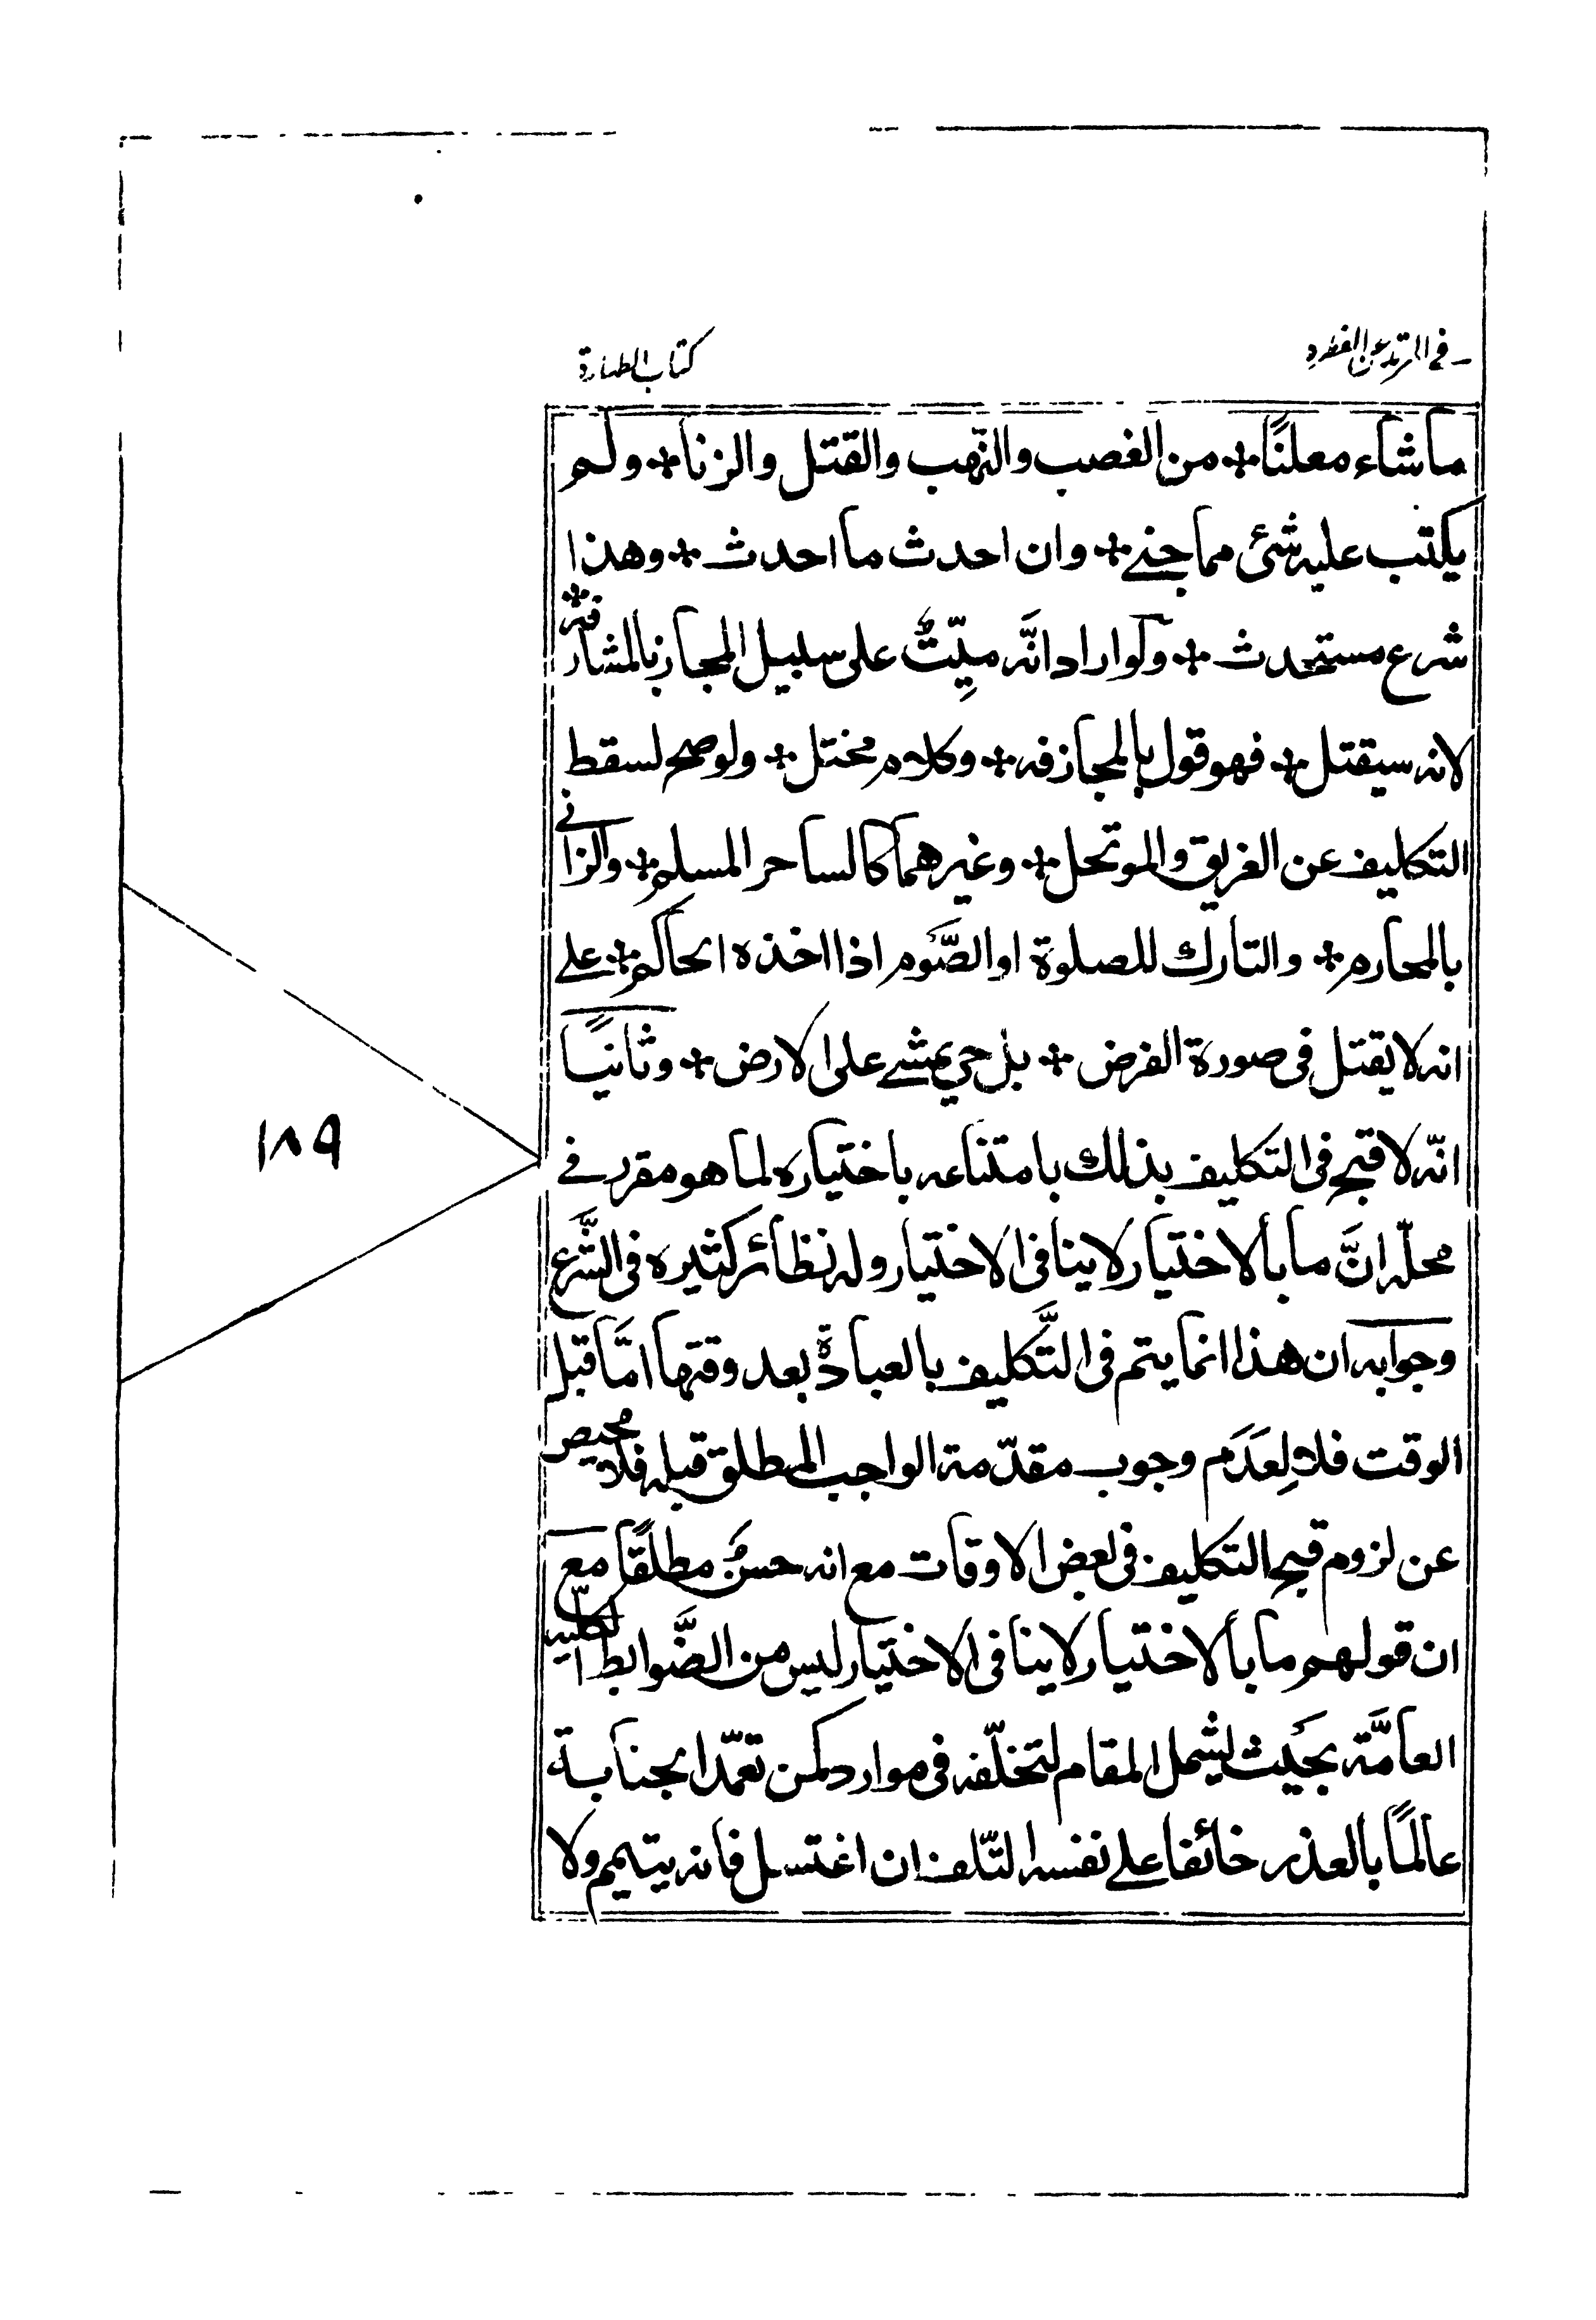 في المرتد عن الفطره
كتاب الطهارة
ما شاء معلنًا ÷ من الغصب والنّهب والقتل والزنا ÷ ولم
يكتب عليه شئ مما جنے ÷ وان احدث ما احدث ÷ وهذا
شرع مستحدث ÷ ولو اراد انَّه ميِّتٌ على سبيل المجاز بالمشارفة ÷
لانه سيقتل ÷ فهو قول بالمجازفه ÷ وكلام مختل ÷ ولو صح لسقط
التكليف عن الغريق والموتحل ÷ وغيرهما كالساحر المسلم ÷ والزاني
بالمحارم ÷ والتارك للصلوة او الصَّوم اذا اخذه الحاكم ÷ علے
انه لا يقتل في صورة الفرض ÷ بل حي يمشے على الارض ÷ وثانيًا
انّه لا قبح في التكليف بذلك بامتناعه باختياره لما هو مقرر في
محلّه انَّ ما بالاختيار لا ينافي الاختيار وله نظائر كثيره في الشَّرع
وجوابه ان هذا انما يتم في التَّكليف بالعبادة بعد وقتها امَّا قبل
الوقت فلا لِعَدَم وجوب مقدّمة الواجب المطلق قبله فلا محيص
عن لزوم قبح التكليف في بعض الاوقات مع انه حسنٌ مطلقًا مع
ان قولهم ما بالاختيار لا ينافي الاختيار ليس من الضَّوابط الكلّية
العامَّة بحَيث يشمل المقام لتخلّفه في موارد كمن تعمّد الجنابة
عالمًا بالعذر خائفا علے نفسه التّلف ان اغتسل فانه يتيمم ولا
١٨٩